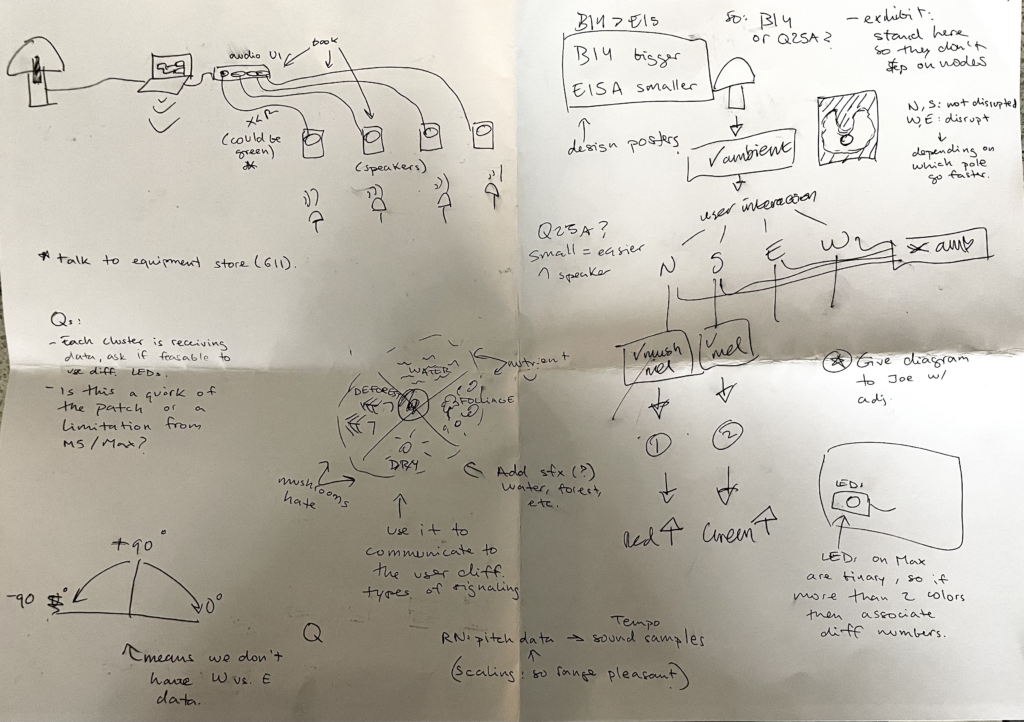 audio UI
book
XLR
(could be
green)
*
(speakers)
* talk to equipment store (G11).
Qs:
- Each cluster is receiving
data, ask if feasable to
use diff. LEDs.
- Is this a quirk of
the patch or a
limitation from
M5/Max?
WATER
nutrient
DEFOREST
FOLLIAGE
DRY
mushrooms
hate
Add sfx (?)
water, forest,
etc.
use it to
communicate to
the user diff.
types of signaling
+90°
-90°
0°
means we don't
have W vs. E
data.
Q
Tempo
RN: pitch data → sound samples
(scaling: so range pleasant)
B14 > E15
so: B14
or Q25A?
B14 bigger
E15A smaller
design posters
- exhibit:
stand here
so they don't
step on nodes
N, S: not disrupted
W, E: disrupt
depending on
which pole
go faster.
✓ambient
user interaction
Q25A?
small = easier
^ speaker
N
S
E
W
✓mush
mel
✓mel
1
2
Red ↑
Green ↑
Give diagram
to Joe w/
adj.
LEDs
LEDs on Max
are binary, so if
more than 2 colors
then associate
diff numbers.